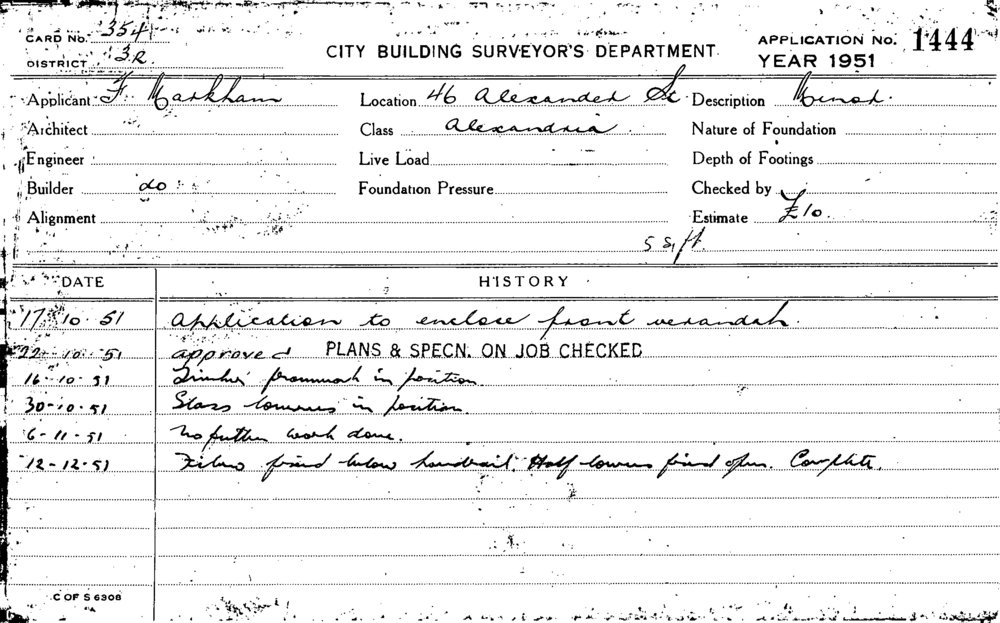 CARD No. 354
DISTRICT 3R.
CITY BUILDING SURVEYOR'S DEPARTMENT.
APPLICATION No. 1444
YEAR 1951
Applicant F. Markham
Location 46 Alexander St
Description Minor.
Architect
Class Alexandria
Nature of Foundation
Engineer
Live Load
Depth of Footings
Builder do
Foundation Pressure
Checked by
Alignment
Estimate £10.
5 Sq ft.
DATE HISTORY
17. 10. 51 Application to enclose front verandah.
22. 10. 51 approved PLANS & SPECN. ON JOB CHECKED
16-10-51 Timber framework in position
30-10-51 Glass louvres in position.
6-11-51 No further work done.
12-12-51 Fibro fixed below handrail. Half louvres fixed open. Complete.
C OF S 6308